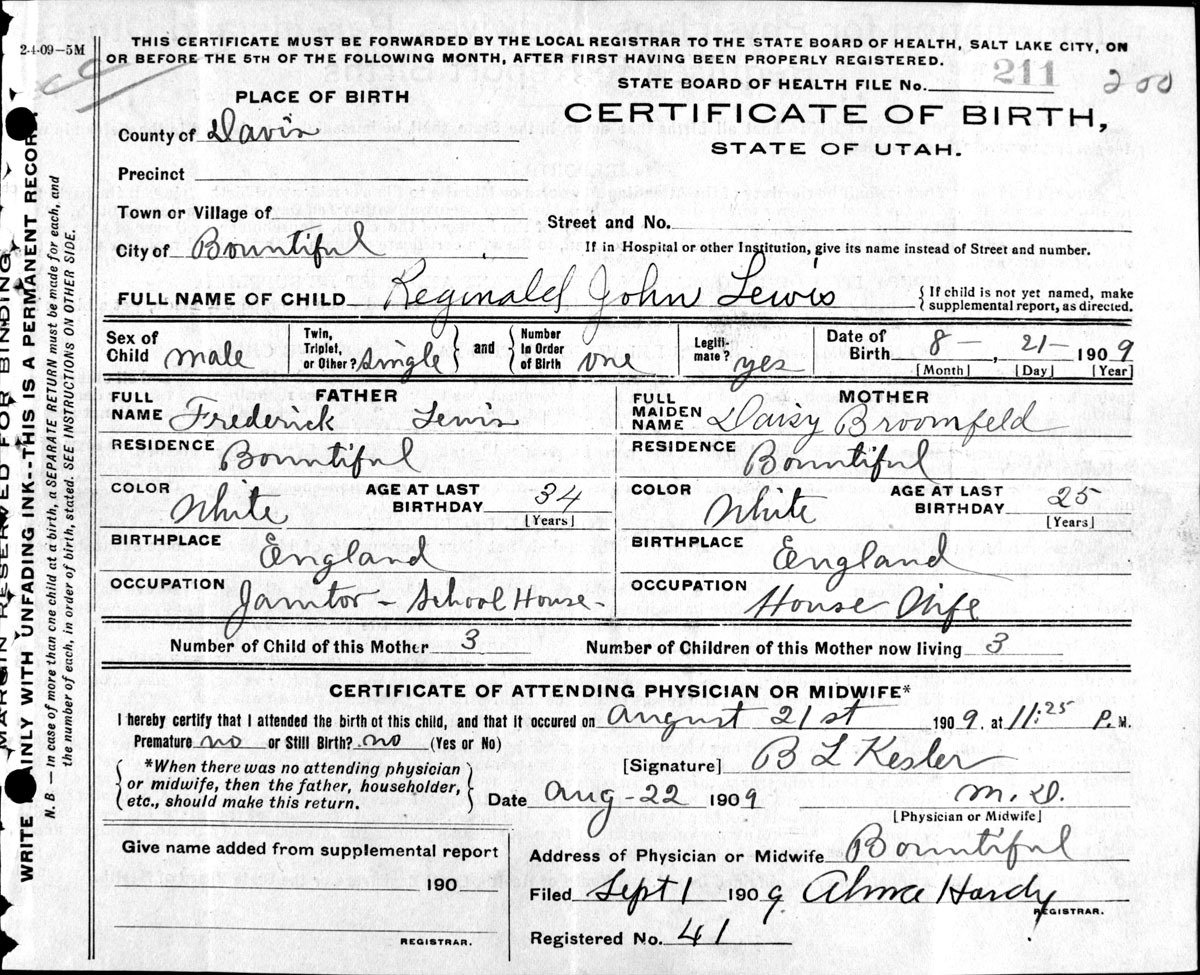 2-4-09-5M
THIS CERTIFICATE MUST BE FORWARDED BY THE LOCAL REGISTRAR TO THE STATE BOARD OF HEALTH, SALT LAKE CITY, ON
OR BEFORE THE 5TH OF THE FOLLOWING MONTH, AFTER FIRST HAVING BEEN PROPERLY REGISTERED.
STATE BOARD OF HEALTH FILE No. 211 200
PLACE OF BIRTH
CERTIFICATE OF BIRTH,
STATE OF UTAH.
County of Davis
Precinct
Town or Village of
Street and No.
City of Bountiful
If in Hospital or other Institution, give its name instead of Street and number.
FULL NAME OF CHILD Reginald John Lewis
{ If child is not yet named, make
supplemental report, as directed.
Sex of Child male
Twin, Triplet, or Other? single } and { Number In Order of Birth one
Legiti-mate? yes
Date of Birth 8 - , 21 - 1909
[Month] [Day] [Year]
FATHER
FULL NAME Frederick Lewis
RESIDENCE Bountiful
COLOR White
AGE AT LAST BIRTHDAY 34
[Years]
BIRTHPLACE England
OCCUPATION Janitor - School House -
MOTHER
FULL MAIDEN NAME Daisy Broomfeld
RESIDENCE Bountiful
COLOR White
AGE AT LAST BIRTHDAY 25
[Years]
BIRTHPLACE England
OCCUPATION House Wife
Number of Child of this Mother 3
Number of Children of this Mother now living 3
CERTIFICATE OF ATTENDING PHYSICIAN OR MIDWIFE*
I hereby certify that I attended the birth of this child, and that it occured on August 21st 1909 at 11:25 P.M.
Premature no or Still Birth? no (Yes or No)
{ *When there was no attending physician
or midwife, then the father, householder,
etc., should make this return. }
[Signature] B L Kesler
Date Aug - 22 1909 M.D.
[Physician or Midwife]
Give name added from supplemental report
190
REGISTRAR.
Address of Physician or Midwife Bountiful
Filed Sept 1 1909 Alma Hardy
REGISTRAR.
Registered No. 41
MARGIN RESERVED FOR BINDING
WRITE PLAINLY WITH UNFADING INK--THIS IS A PERMANENT RECORD.
N. B. — In case of more than one child at a birth, a SEPARATE RETURN must be made for each, and
the number of each, in order of birth, stated. SEE INSTRUCTIONS ON OTHER SIDE.